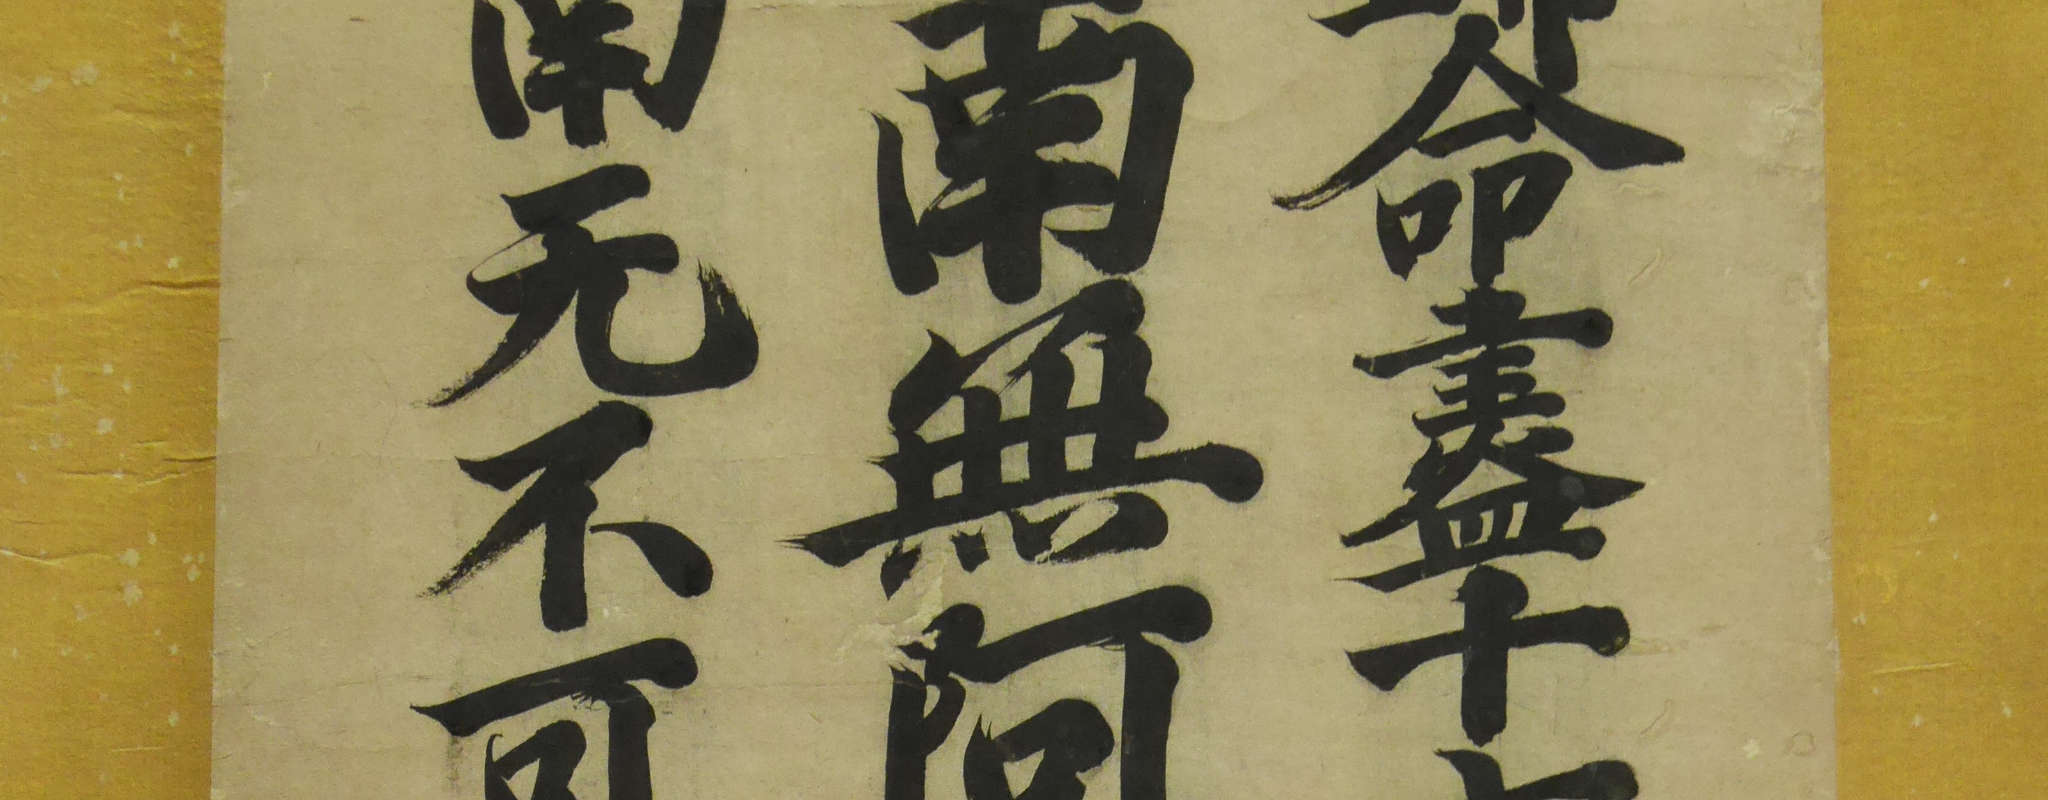 命盡十
南無阿
南无不可